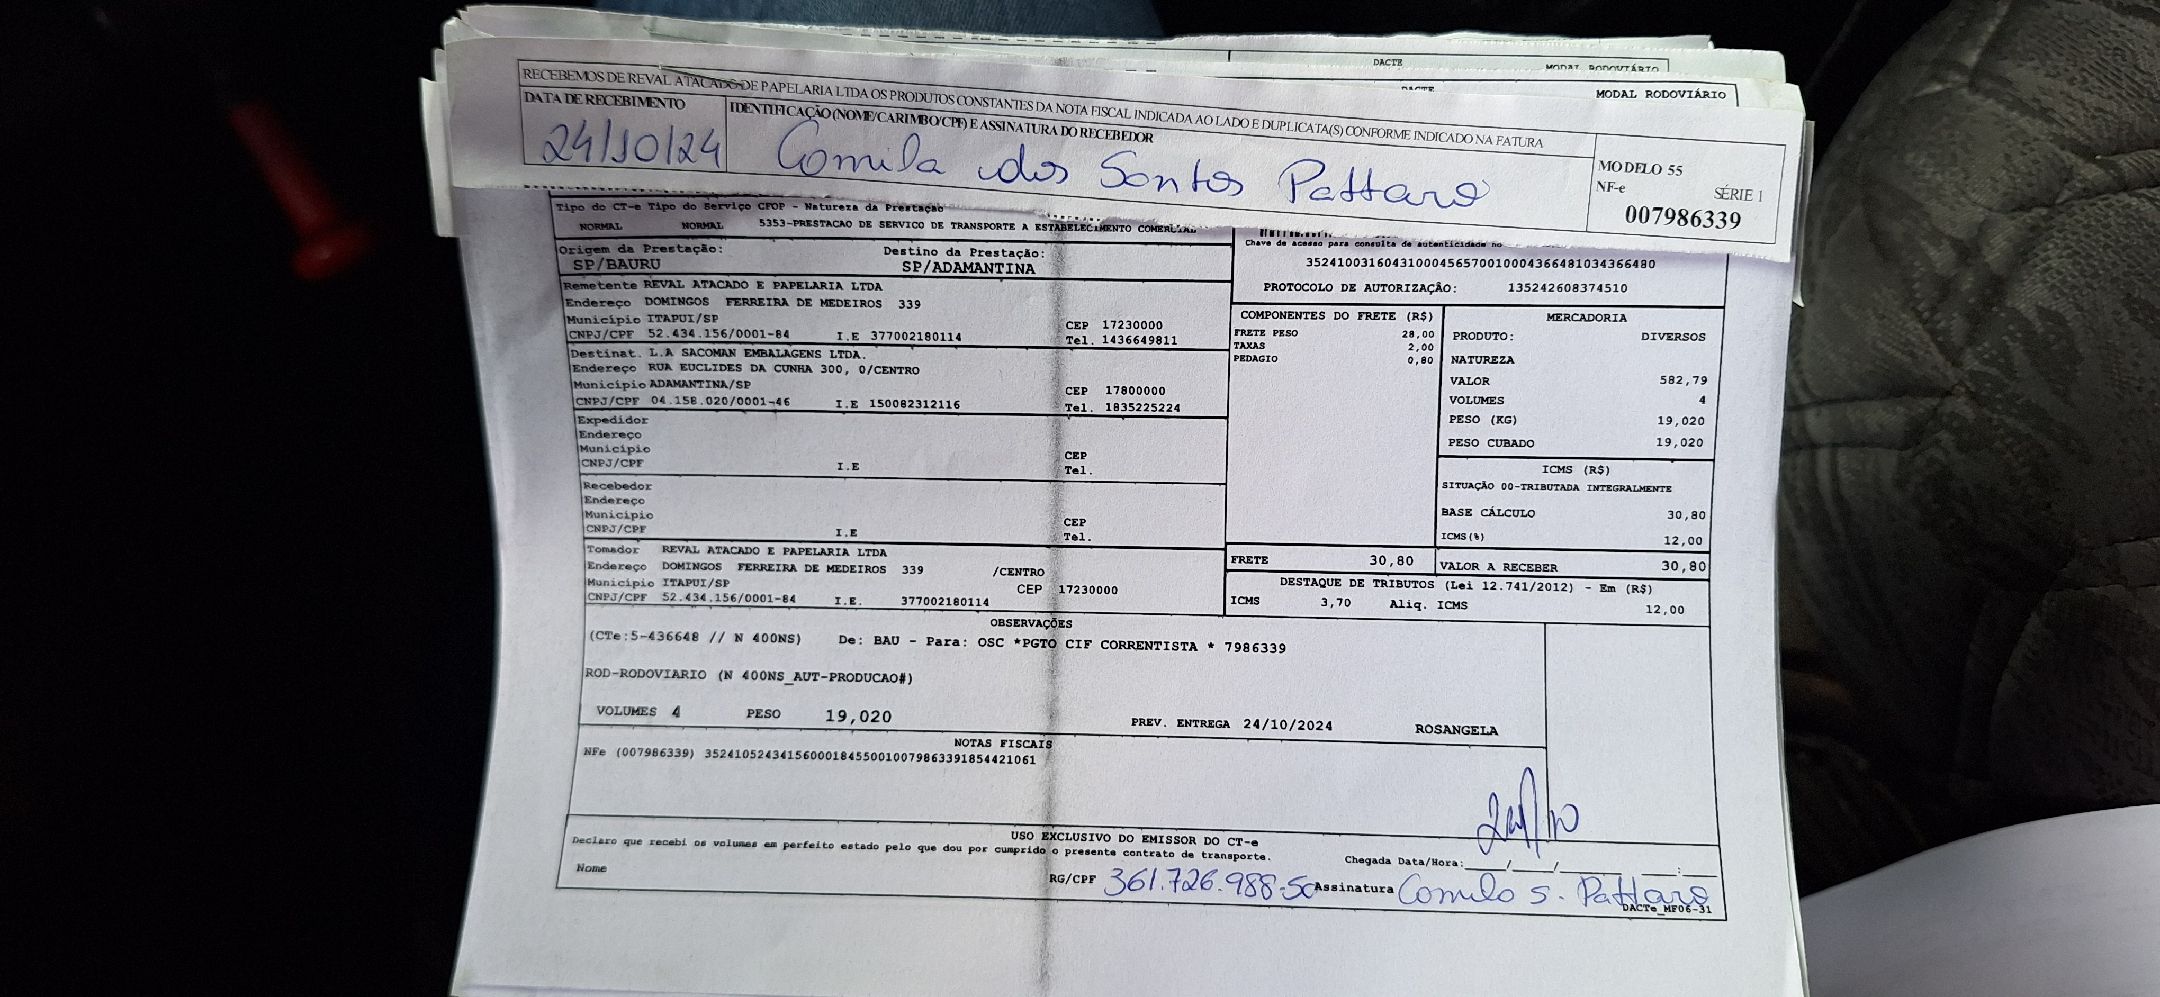 DACTE
MODAL RODOVIÁRIO
DACTE
MODAL RODOVIÁRIO
RECEBEMOS DE REVAL ATACADO DE PAPELARIA LTDA OS PRODUTOS CONSTANTES DA NOTA FISCAL INDICADA AO LADO E DUPLICATA(S) CONFORME INDICADO NA FATURA
DATA DE RECEBIMENTO
IDENTIFICAÇÃO (NOME/CARIMBO/CPF) E ASSINATURA DO RECEBEDOR
24/10/24
Comila dos Santos Pattaro
MODELO 55
NF-e SÉRIE 1
007986339
Tipo do CT-e Tipo do Serviço CFOP - Natureza da Prestação
NORMAL NORMAL 5353-PRESTACAO DE SERVICO DE TRANSPORTE A ESTABELECIMENTO COMERCIAL
Origem da Prestação: Destino da Prestação:
SP/BAURU SP/ADAMANTINA
Chave de acesso para consulta de autenticidade no
35241003160431000456570010004366481034366480
PROTOCOLO DE AUTORIZAÇÃO: 135242608374510
Remetente REVAL ATACADO E PAPELARIA LTDA
Endereço DOMINGOS FERREIRA DE MEDEIROS 339
Município ITAPUI/SP CEP 17230000
CNPJ/CPF 52.434.156/0001-84 I.E 377002180114 Tel. 1436649811
Destinat. L.A SACOMAN EMBALAGENS LTDA.
Endereço RUA EUCLIDES DA CUNHA 300, 0/CENTRO
Município ADAMANTINA/SP CEP 17800000
CNPJ/CPF 04.158.020/0001-46 I.E 150082312116 Tel. 1835225224
Expedidor
Endereço
Município CEP
CNPJ/CPF I.E Tel.
Recebedor
Endereço
Município CEP
CNPJ/CPF I.E Tel.
Tomador REVAL ATACADO E PAPELARIA LTDA
Endereço DOMINGOS FERREIRA DE MEDEIROS 339 /CENTRO
Município ITAPUI/SP CEP 17230000
CNPJ/CPF 52.434.156/0001-84 I.E. 377002180114
COMPONENTES DO FRETE (R$)
FRETE PESO 28,00
TAXAS 2,00
PEDAGIO 0,80
MERCADORIA
PRODUTO: DIVERSOS
NATUREZA
VALOR 582,79
VOLUMES 4
PESO (KG) 19,020
PESO CUBADO 19,020
ICMS (R$)
SITUAÇÃO 00-TRIBUTADA INTEGRALMENTE
BASE CÁLCULO 30,80
ICMS(%) 12,00
FRETE 30,80 VALOR A RECEBER 30,80
DESTAQUE DE TRIBUTOS (Lei 12.741/2012) - Em (R$)
ICMS 3,70 Aliq. ICMS 12,00
OBSERVAÇÕES
(CTe:5-436648 // N 400NS) De: BAU - Para: OSC *PGTO CIF CORRENTISTA * 7986339
ROD-RODOVIARIO (N 400NS_AUT-PRODUCAO#)
VOLUMES 4 PESO 19,020 PREV. ENTREGA 24/10/2024 ROSANGELA
NOTAS FISCAIS
NFe (007986339) 35241052434156000184550010079863391854421061
24/10
USO EXCLUSIVO DO EMISSOR DO CT-e
Declaro que recebi os volumes em perfeito estado pelo que dou por cumprido o presente contrato de transporte.
Chegada Data/Hora:____/____/______ ____:____
Nome RG/CPF 361.726.988-50 Assinatura Comila S. Pattaro
DACTe_MF06-31